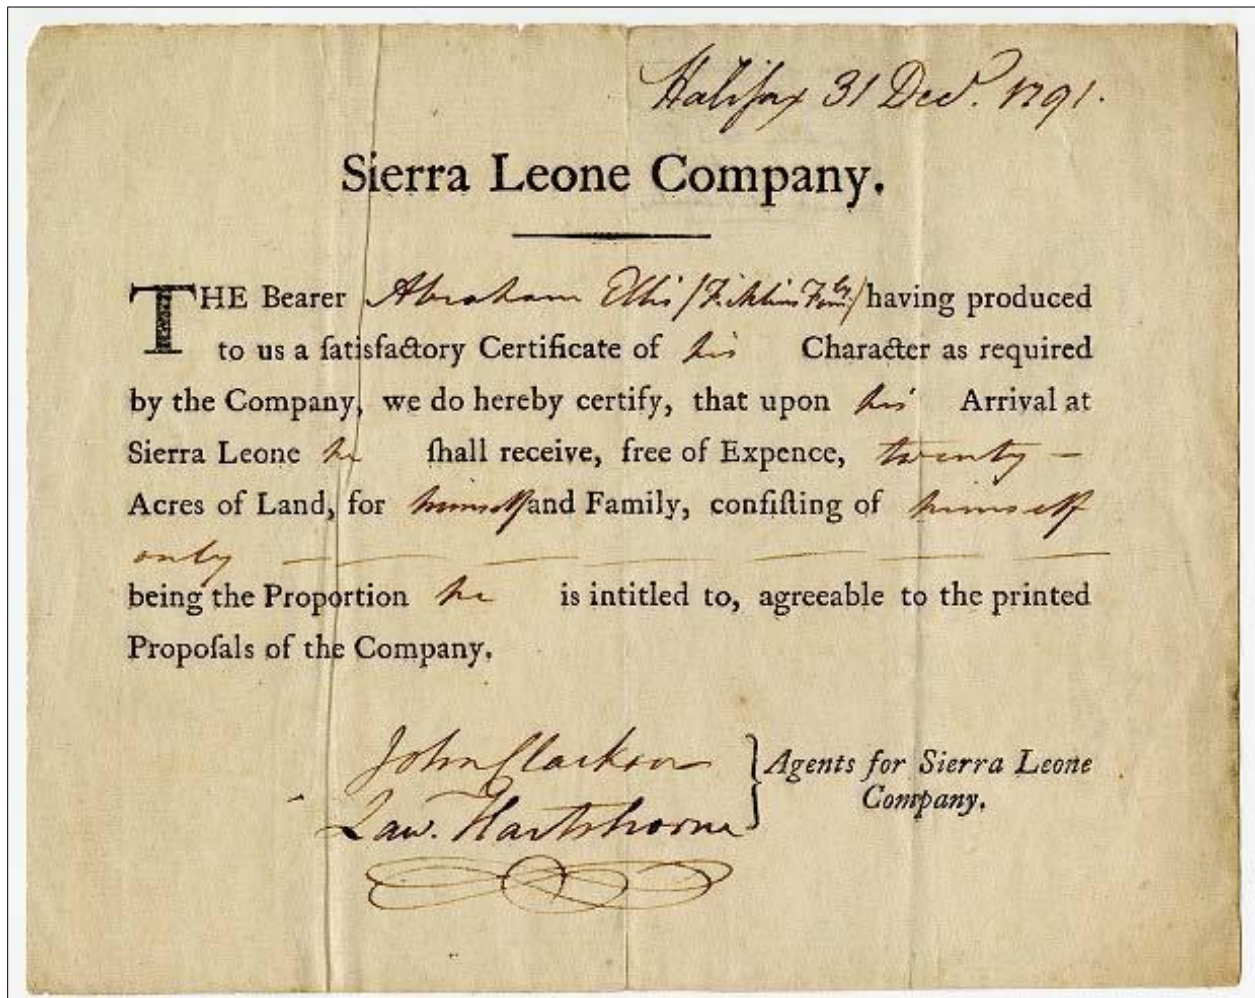 Halifax 31 Decr. 1791.
Sierra Leone Company.
THE Bearer Abraham Ellis having produced
to us a ſatisfactory Certificate of his Character as required
by the Company, we do hereby certify, that upon his Arrival at
Sierra Leone he ſhall receive, free of Expence, twenty –
Acres of Land, for himself and Family, conſiſting of himself
only
being the Proportion he is intitled to, agreeable to the printed
Propoſals of the Company.
John Clarkson } Agents for Sierra Leone
Law. Hartshorne Company.